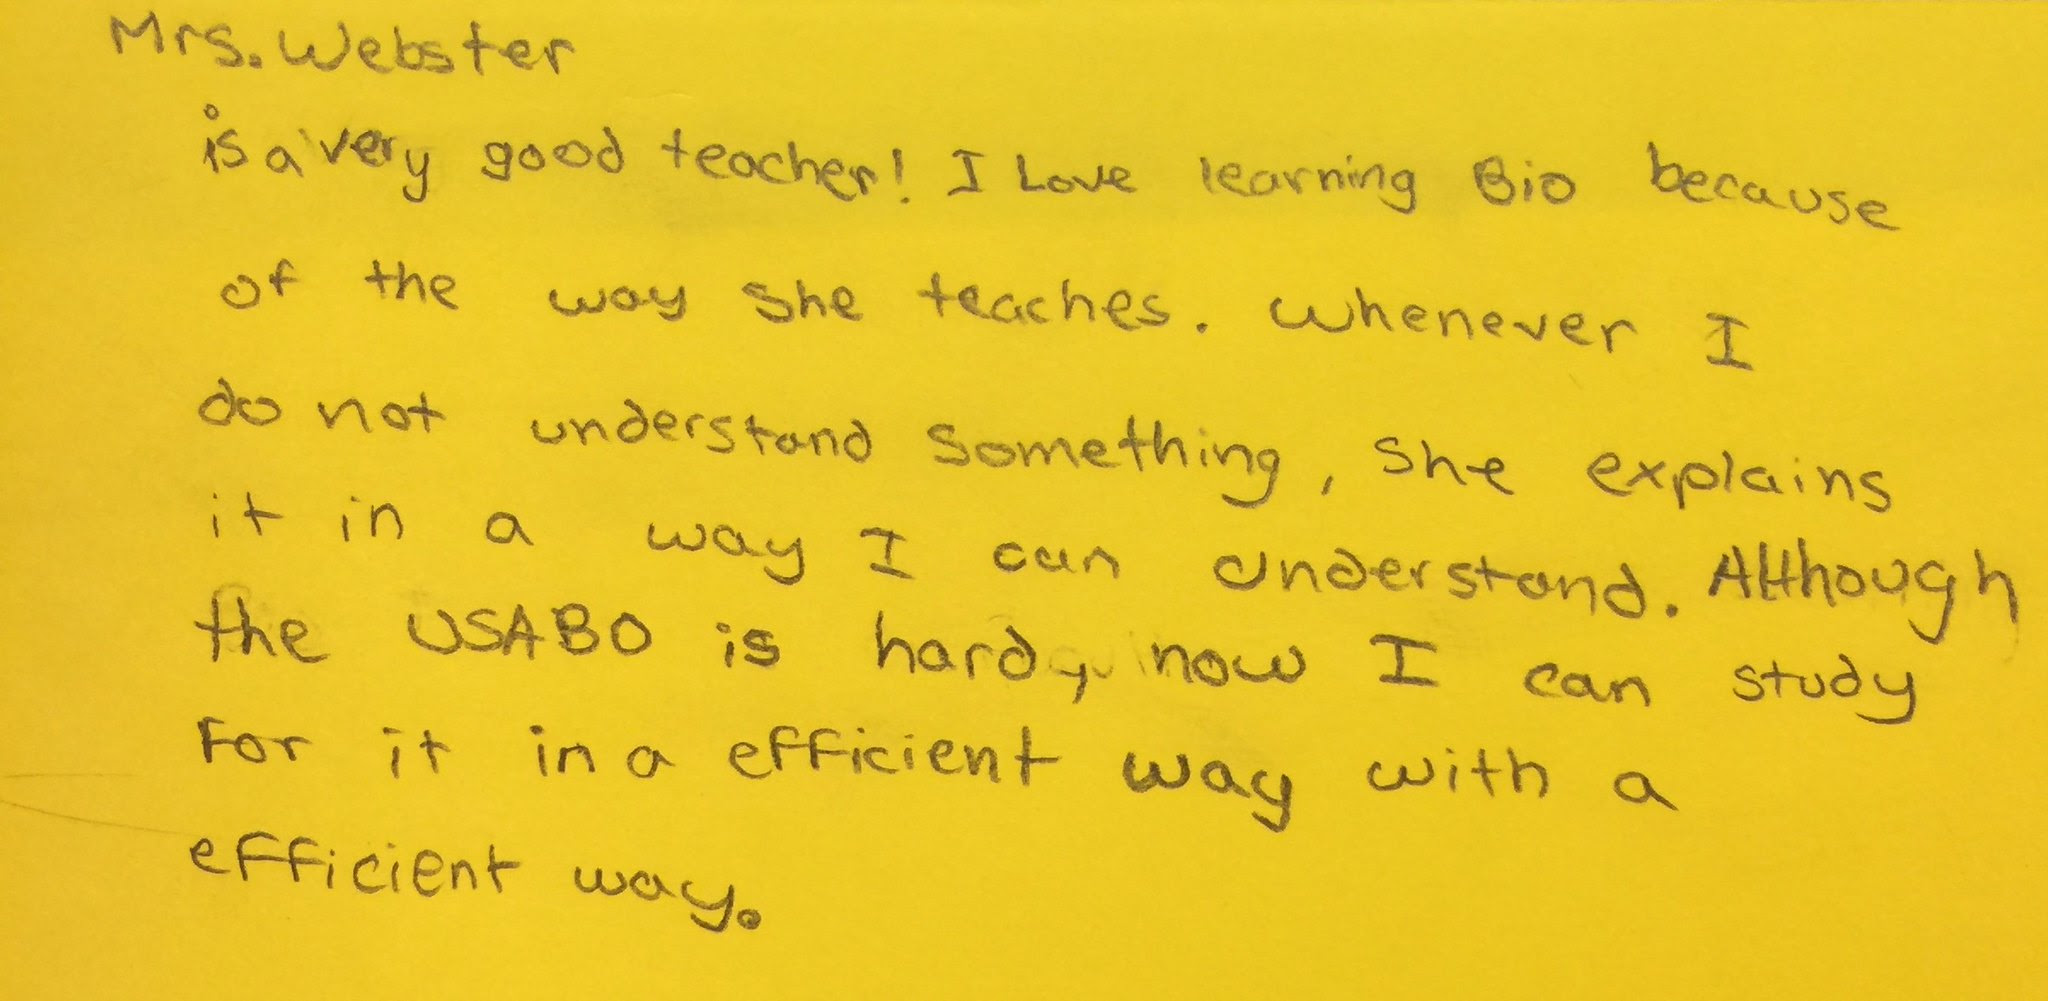 Mrs. Webster
is a very good teacher! I Love learning Bio because
of the way she teaches. Whenever I
do not understand something, she explains
it in a way I can understand. Although
the USABO is hard, now I can study
for it in a efficient way with a
efficient way.